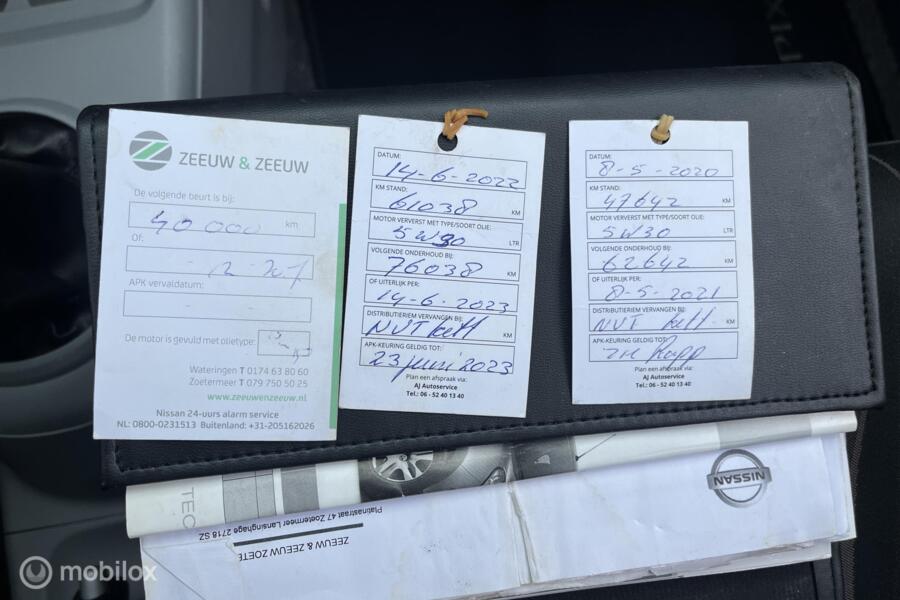 ZEEUW & ZEEUW
De volgende beurt is bij:
40 000 km
Of:
APK vervaldatum:
De motor is gevuld met olietype:
Wateringen T 0174 63 80 60
Zoetermeer T 079 750 50 25
www.zeeuwenzeeuw.nl
Nissan 24-uurs alarm service
NL: 0800-0231513 Buitenland: +31-205162026
DATUM:
14-6-2022
KM STAND:
61038 KM
MOTOR VERVERST MET TYPE/SOORT OLIE:
5W30 LTR
VOLGENDE ONDERHOUD BIJ:
76038 KM
OF UITERLIJK PER:
14-6-2023
DISTRIBUTIERIEM VERVANGEN BIJ:
NVT kett KM
APK-KEURING GELDIG TOT:
23 juni 2023
Plan een afspraak via:
AJ Autoservice
Tel.: 06 - 52 40 13 40
DATUM:
8-5-2020
KM STAND:
47642 KM
MOTOR VERVERST MET TYPE/SOORT OLIE:
5W30 LTR
VOLGENDE ONDERHOUD BIJ:
62642 KM
OF UITERLIJK PER:
8-5-2021
DISTRIBUTIERIEM VERVANGEN BIJ:
NVT kett KM
APK-KEURING GELDIG TOT:
Plan een afspraak via:
AJ Autoservice
Tel.: 06 - 52 40 13 40
TEC
NISSAN
ZEEUW & ZEEUW ZOETE
Platinastraat 47 Zoetermeer Lansinghage 2718 SZ
mobilox